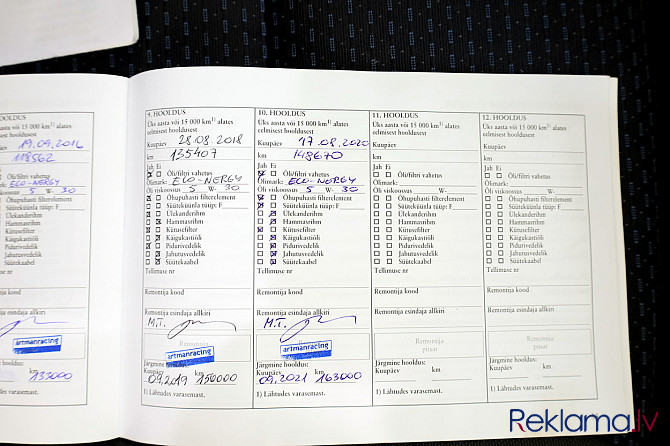 HOOLDUS
aasta või 15 000 km¹⁾ alates
misest hooldusest
19.09.2016
118562
Ei
Õli/filtri vahetus
ECO-NERGY
5 W- 30
Õhupuhasti filterelement
Süüteküünla tüüp: F
Ülekanderihm
Hammasrihm
Kütusefilter
Käigukastiõli
Pidurivedelik
Jahutusvedelik
Süütekaabel
artmanracing
133000
9. HOOLDUS
Üks aasta või 15 000 km¹⁾ alates
eelmisest hooldusest
Kuupäev 28.08.2018
km 135407
Jah Ei
Õli/filtri vahetus
Õlimark: ECO-NERGY
Õli viskoossus 5 W- 30
Õhupuhasti filterelement
Süüteküünla tüüp: F
Ülekanderihm
Hammasrihm
Kütusefilter
Käigukastiõli
Pidurivedelik
Jahutusvedelik
Süütekaabel
Tellimuse nr
Remontija kood
Remontija esindaja allkiri
M.T.
artmanracing
Järgmine hooldus:
Kuupäev km
09.2019 150000
1) Lähtudes varasemast.
10. HOOLDUS
Üks aasta või 15 000 km¹⁾ alates
eelmisest hooldusest
Kuupäev 17.08.2020
km 148670
Jah Ei
Õli/filtri vahetus
Õlimark: ECO-NERGY
Õli viskoossus 5 W- 30
Õhupuhasti filterelement
Süüteküünla tüüp: F
Ülekanderihm
Hammasrihm
Kütusefilter
Käigukastiõli
Pidurivedelik
Jahutusvedelik
Süütekaabel
Tellimuse nr
Remontija kood
Remontija esindaja allkiri
M.T.
artmanracing
Järgmine hooldus:
Kuupäev km
09.2021 163000
1) Lähtudes varasemast.
11. HOOLDUS
Üks aasta või 15 000 km¹⁾ alates
eelmisest hooldusest
Kuupäev
km
Jah Ei
Õli/filtri vahetus
Õlimark:
Õli viskoossus W-
Õhupuhasti filterelement
Süüteküünla tüüp: F
Ülekanderihm
Hammasrihm
Kütusefilter
Käigukastiõli
Pidurivedelik
Jahutusvedelik
Süütekaabel
Tellimuse nr
Remontija kood
Remontija esindaja allkiri
Remontija
pitsat
Järgmine hooldus:
Kuupäev km
1) Lähtudes varasemast.
12. HOOLDUS
Üks aasta või 15 000 km¹⁾ alates
eelmisest hooldusest
Kuupäev
km
Jah Ei
Õli/filtri vahetus
Õlimark:
Õli viskoossus W-
Õhupuhasti filterelement
Süüteküünla tüüp: F
Ülekanderihm
Hammasrihm
Kütusefilter
Käigukastiõli
Pidurivedelik
Jahutusvedelik
Süütekaabel
Tellimuse nr
Remontija kood
Remontija esindaja allkiri
Remontija
pitsat
Järgmine hooldus:
Kuupäev km
1) Lähtudes varasemast.
Reklama.lv